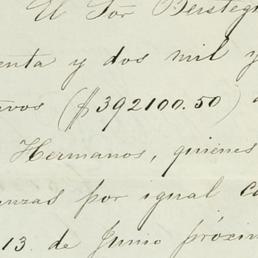 El Sor Beistegui
enta y dos mil y
avos ($392100.50)
Hermanos, quienes
nzas por igual ca
13. de Junio próxim